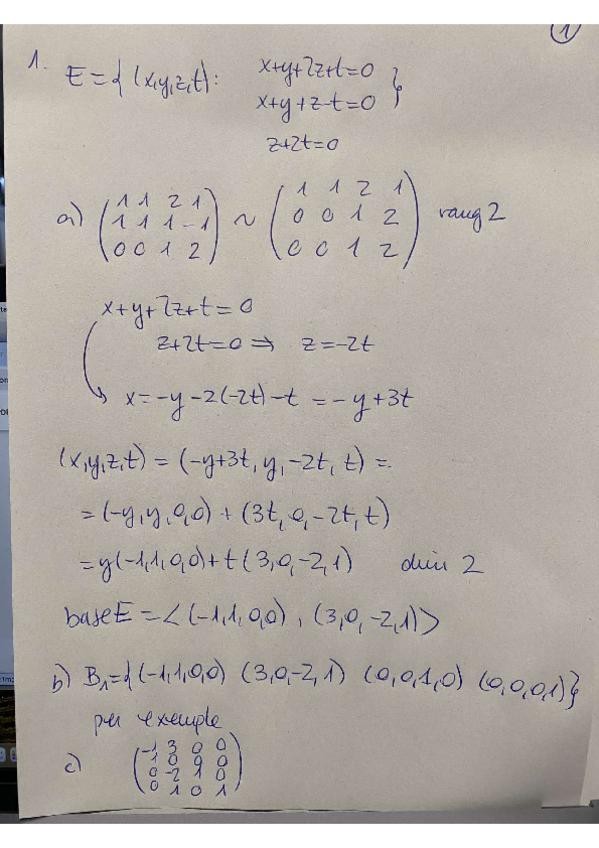 1
1. E = { (x,y,z,t): x+y+2z+t=0
x+y+z-t=0 }
z+2t=0
a) (1 1 2 1) ~ (1 1 2 1) rang 2
(1 1 1 -1) (0 0 1 2)
(0 0 1 2) (0 0 1 2)
x+y+2z+t=0
z+2t=0 ⇒ z=-2t
x=-y-2(-2t)-t = -y+3t
(x,y,z,t) = (-y+3t, y, -2t, t) =
= (-y,y,0,0) + (3t,0,-2t,t)
= y(-1,1,0,0)+t(3,0,-2,1) dim 2
base E = < (-1,1,0,0), (3,0,-2,1) >
b) B₁={(-1,1,0,0) (3,0,-2,1) (0,0,1,0) (0,0,0,1)}
per exemple
c) (-1 3 0 0)
(1 0 0 0)
(0 -2 1 0)
(0 1 0 1)